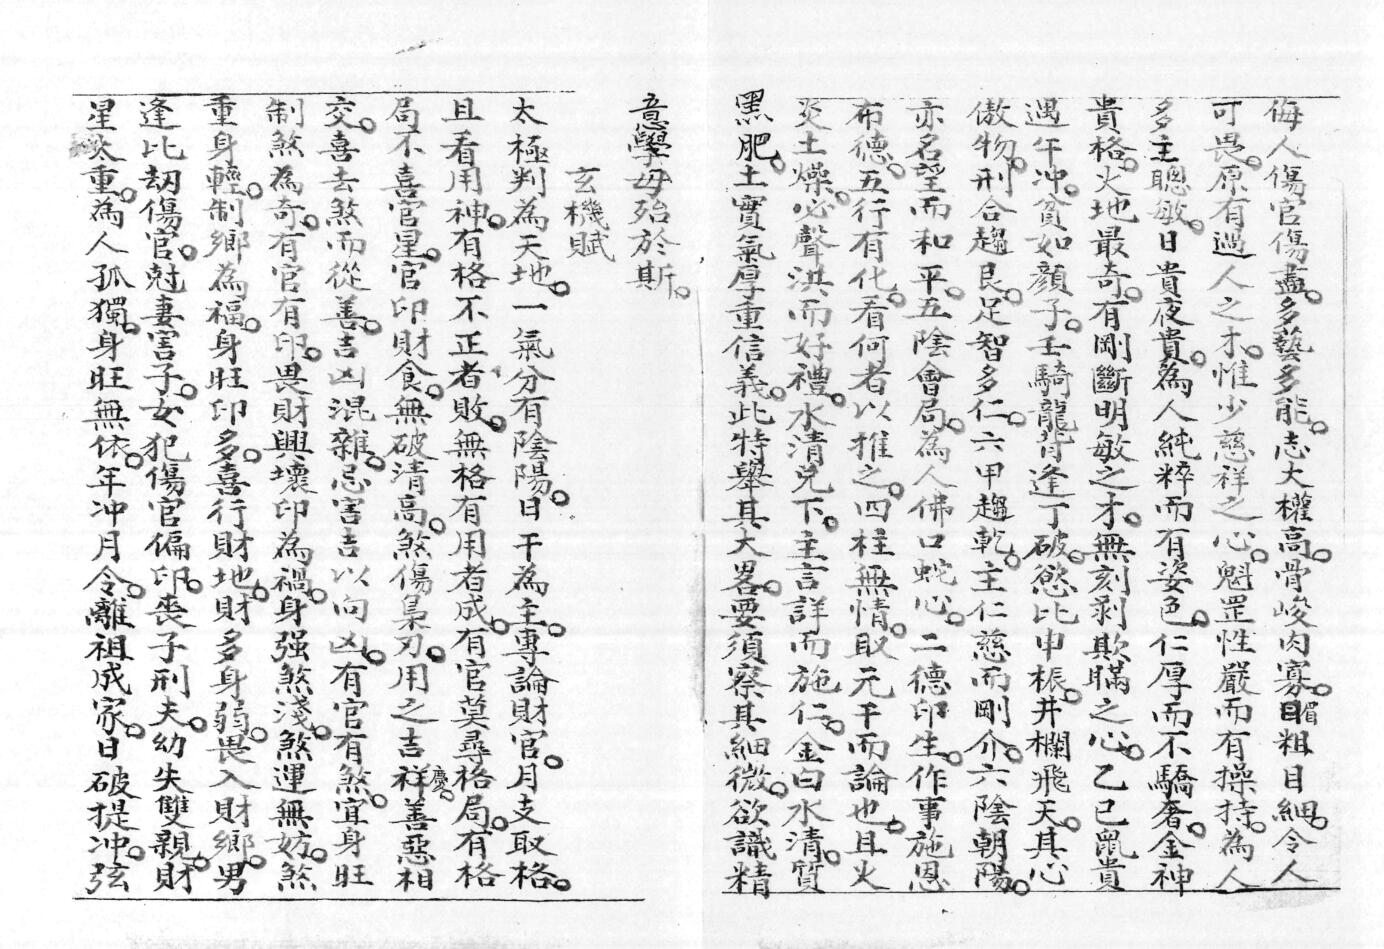 侮人傷官傷盡。多藝多能。志大權高。骨峻肉寡。眉粗目細。令人
可畏。原有過人之才。惟少慈祥之心。魁罡性嚴而有操持。為人
多主聰敏。日貴夜貴。為人純粹而有姿色。仁厚而不驕奢。金神
貴格。火地最奇。有剛斷明敏之才。無刻剥欺瞞之心。乙巳鼠貴
遇午冲。貧如顏子。壬騎龍背逢丁破。慾比申棖。井欄飛天。其心
傲物。刑合趨艮。足智多仁。六甲趨乾。主仁慈而剛介。六陰朝陽。
亦名望而和平。五陰會局。為人佛口蛇心。二德印生。作事施恩
布德。五行有化。看何者以推之。四柱無情。取元干而論也。且火
炎土燥。必聲洪而好禮。水清兌下。主言詳而施仁。金白水清。質
黑肥。土實氣厚重信義。此特舉其大畧。要須察其細微。欲識精
意學毋殆於斯。
玄機賦
太極判為天地。一氣分有陰陽。日干為主。專論財官。月支取格。
且看用神。有格不正者敗。無格有用者成。有官莫尋格局。有格
局不喜官星。官印財食。無破清高。煞傷梟刃。用之吉祥慶善惡相
交。喜去煞而從善。吉凶混雜。忌害吉以向凶。有官有煞。宜身旺
制煞為奇。有官有印。畏財興壞印為禍。身强煞淺。煞運無妨。煞
重身輕。制鄉為福。身旺印多。喜行財地。財多身弱。畏入財鄉。男
逢比刼傷官。尅妻害子。女犯傷官偏印。喪子刑夫。幼失雙親。財
星太重。為人孤獨。身旺無依。年冲月令。離祖成家。日破提冲。弦